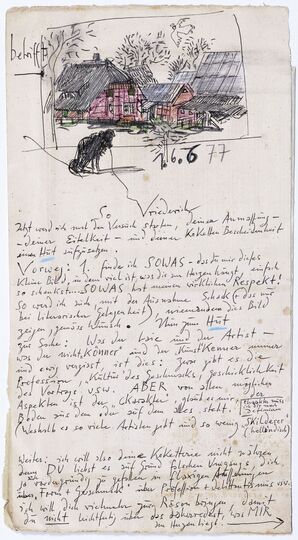 betrifft
1.6.6 77
So Vriederich
Jetzt wird ich mal den Versuch starten, deiner Anmaßung –
– deiner Eitelkeit – und deiner koketten Bescheidenheit
einen Hut aufzusetzen.
Vorweg: 1. finde ich SOWAS – das du mir dieses
kleine Bild, in dem viel ist, was die zu Herzen hängt, einfach
so schenkst. SOWAS hat meinen wirklichen Respekt!
So werd ich dich, mit der Ausnahme Schack (+ das nur
bei literarischer Gelegenheit) niemandem dies Bild
zeigen, gemäss Wunsch. Nun zum Hut
zur Sache: Was der Laie und der Artist –
was der nicht "Könner" und der Kunstkenner immer
und ewig vergisst ist dies: Zwar gibt es die
Profession, Kultur des Geschmacks, Geschicklichkeit
des Vortrags usw. ABER von allen möglichen
Aspekten ist der "Charakter", glaub es mir, der
Boden aus dem oder auf dem alles steht.
(Weshalb es so viele Artisten gibt und so wenig "Skilderer"
(holländisch)
Weiter: ich will also deine Koketterie nicht
denn DU liebst es auf Grund falschen Umgangs, dich
zu gefallen in
über "Form + Geschmack" über Profession + Dilettantismus usw.
ich will dich vielmehr zur Räson bringen damit
du nicht leichtfertig über das daherredest, was MIR
am Herzen liegt.